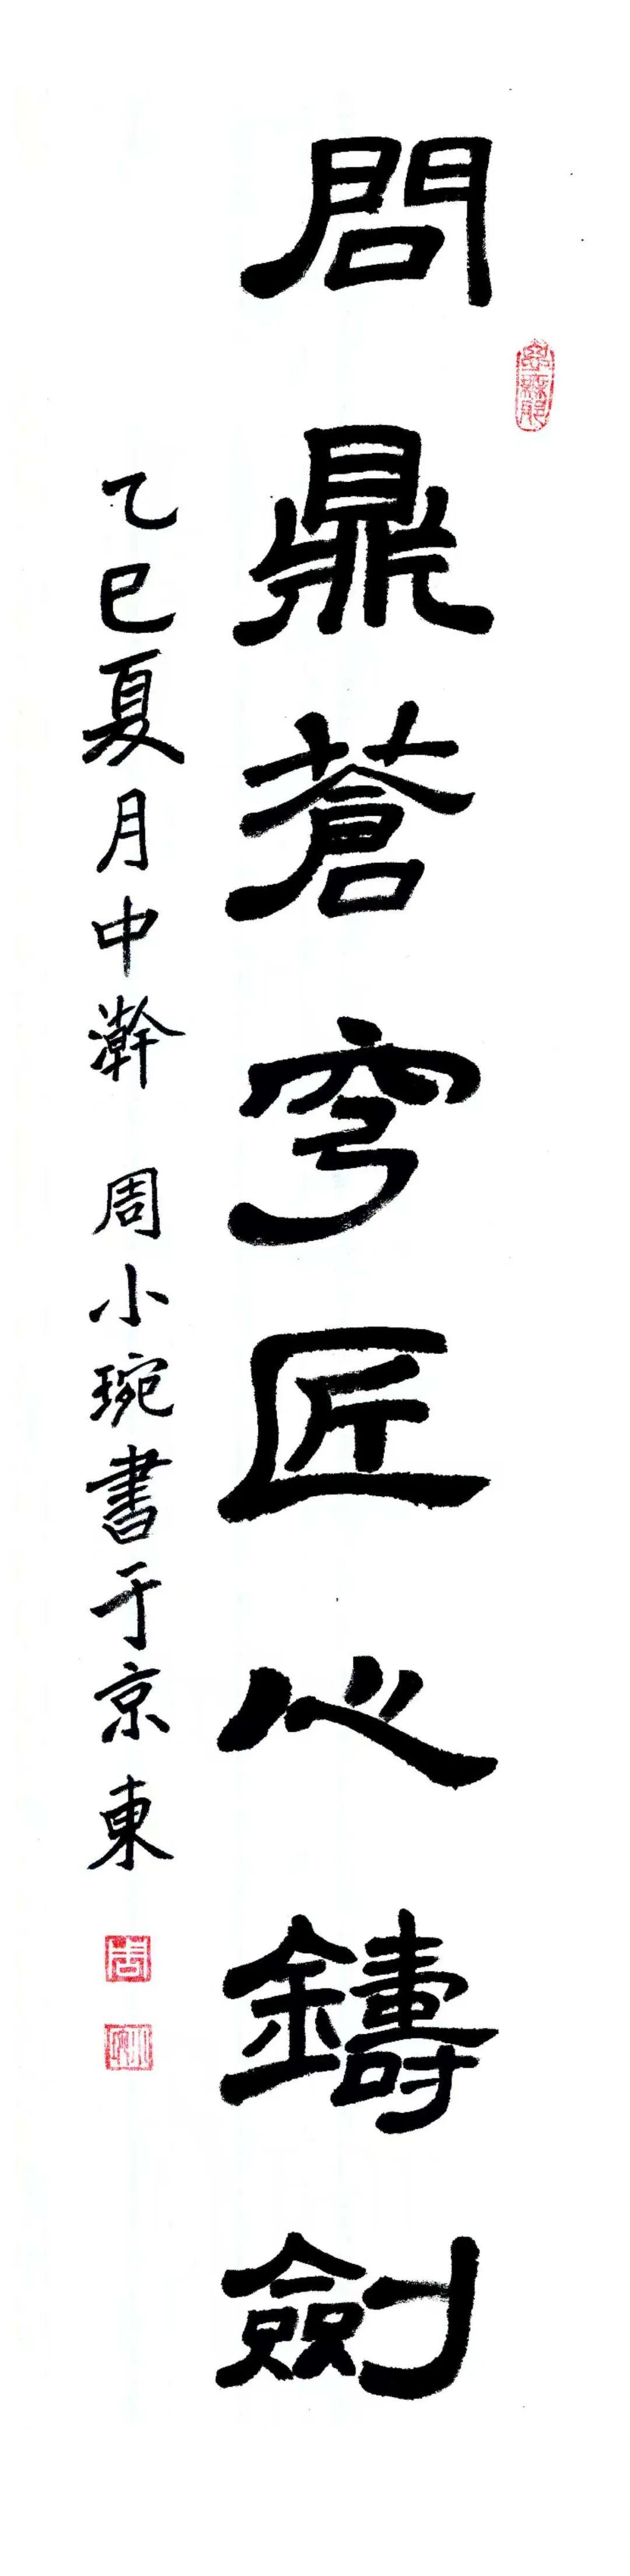 問鼎蒼穹匠心鑄劍
乙巳夏月中澣 周小琬書于京東
周
小琬